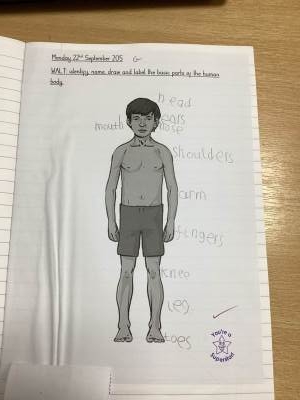 Monday 22nd September 205 G
WALT: identify, name, draw and label the basic parts of the human
body.
head
ears
mouth nose
shoulders
arm
fingers
knee
leg
toes
You're a
Superstar!